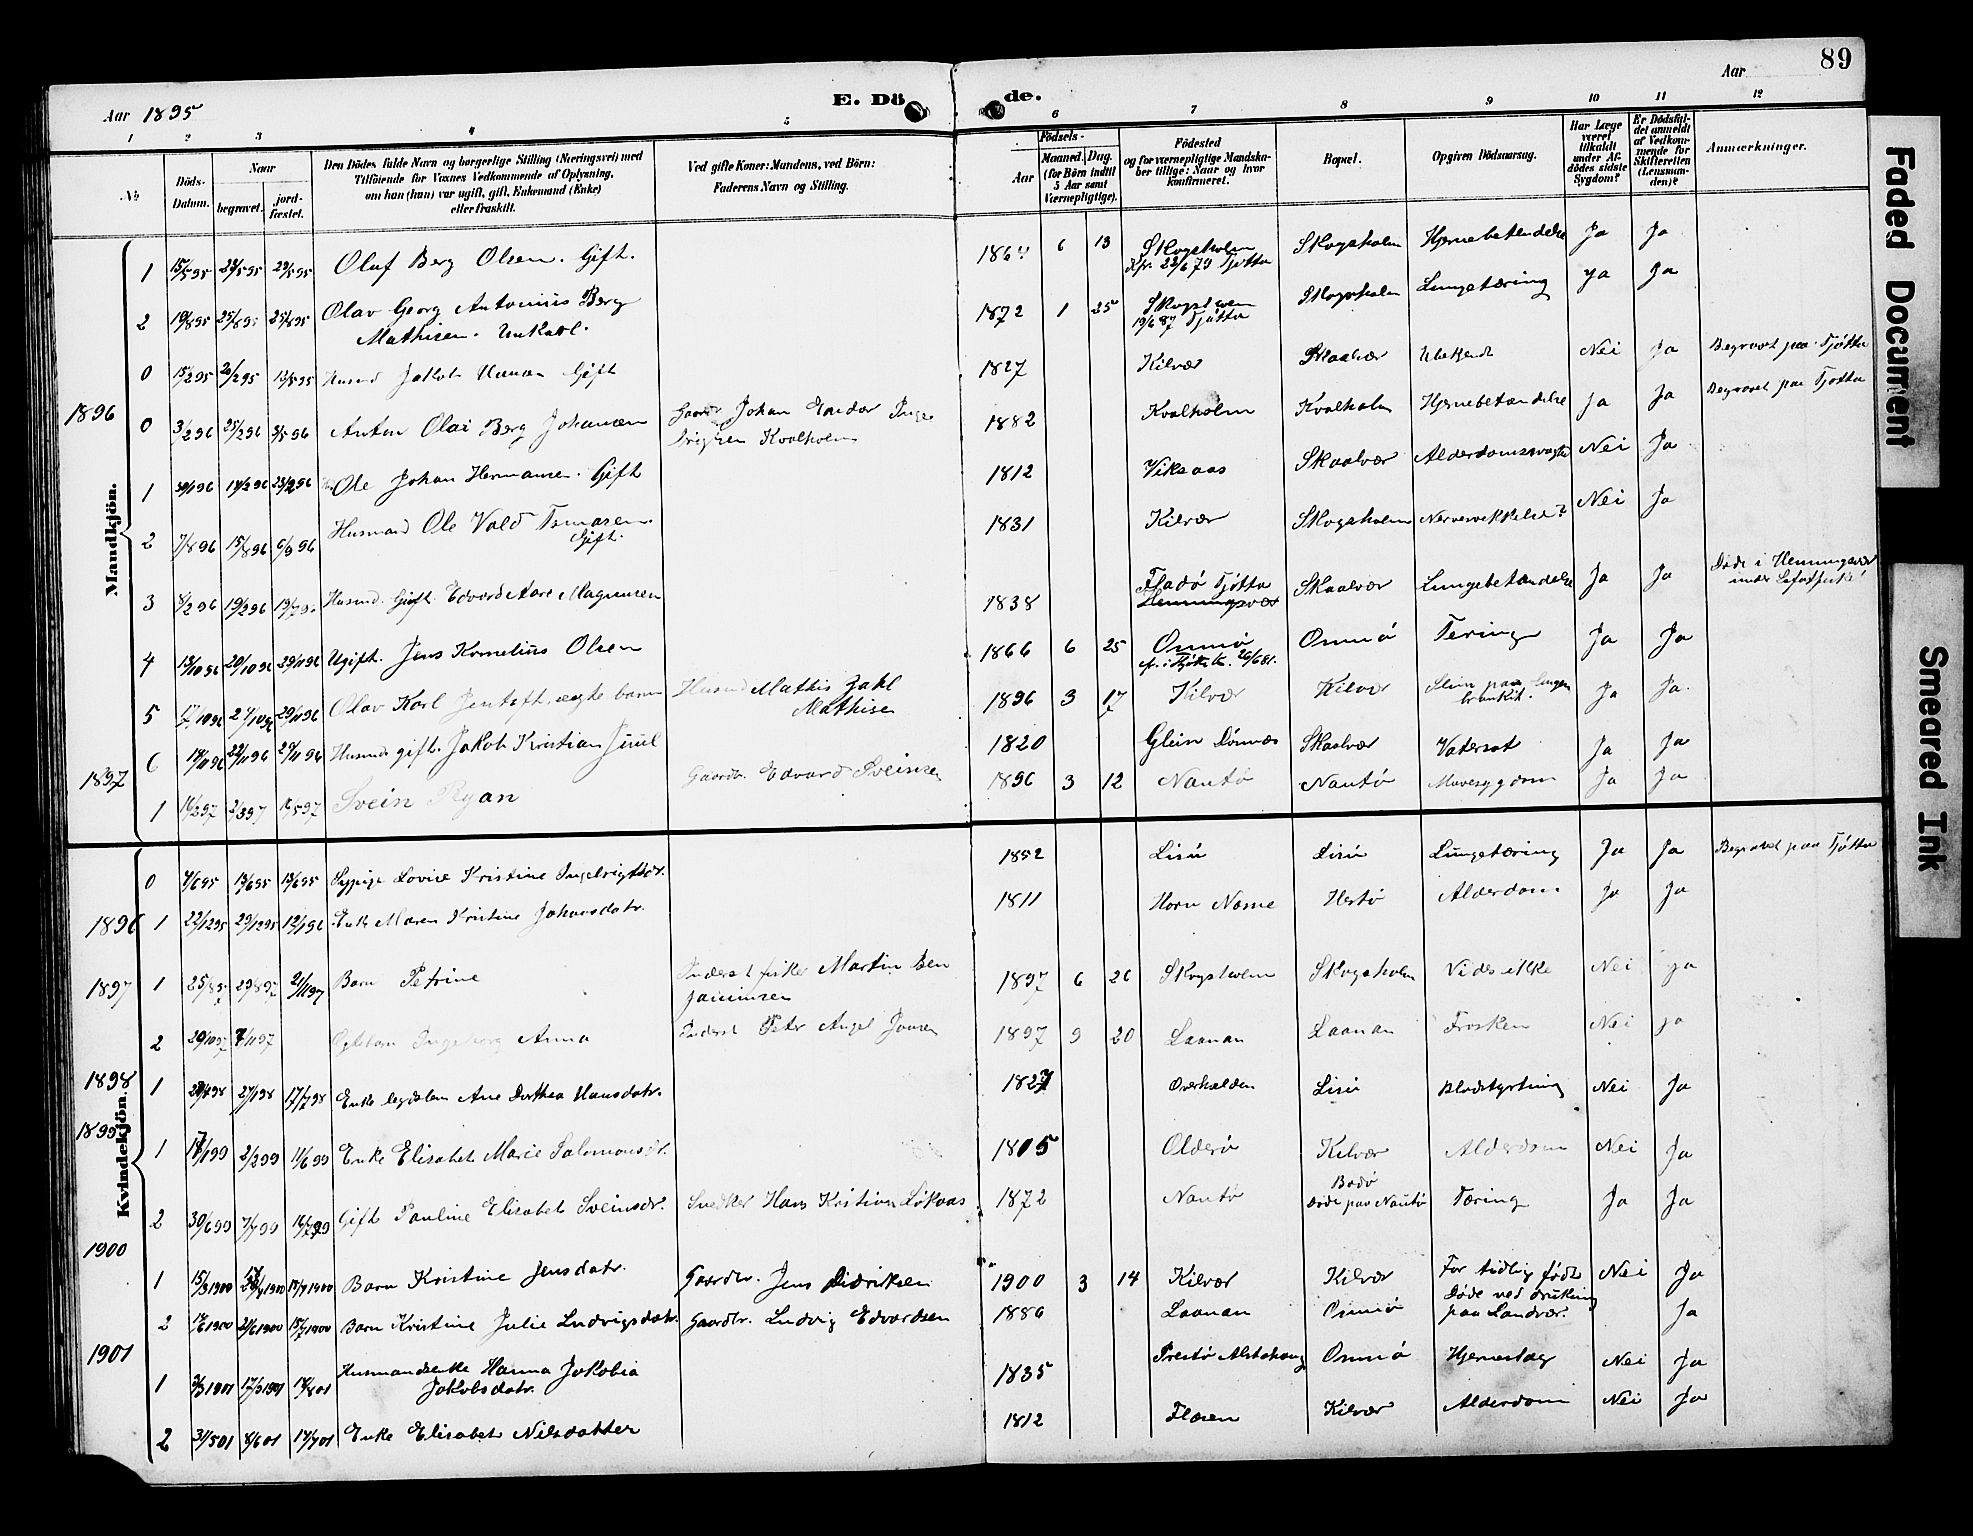 89
Aar 1895
E. Dö de.
Aar
1 2 3 4 5 6 7 8 9 10 11 12
No
Döds-Datum.
Naar
begravet.
jord-fæstet.
Den Dödes fulde Navn og borgerlige Stilling (Næringsvei) med
Tilföiende for Voxnes Vedkommende af Oplysning,
om han (hun) var ugift, gift, Enkemand (Enke)
eller fraskilt.
Ved gifte Koner: Mandens, ved Börn:
Faderens Navn og Stilling.
Födsels-
Aar
Maaned. Dag.
(for Börn indtil
5 Aar samt
Værnepligtige).
Födested
og for værnepligtige Mandska-
ber tillige: Naar og hvor
konfirmeret.
Bopæl.
Opgiven Dödsaarsag.
Har Læge
været
tilkaldt
under Af-
dödes sidste
Sygdom?
Er Dödsfal-
det anmeldt
af Vedkom-
mende for
Skifteretten
(Lensman-
den)?
Anmærkninger.
Mandkjön.
1 15/5 95 28/5 95 29/5 95 Oluf Berg Olsen. Gift. 6 13 Skogsholm Skogsholm Hjernebetændelse Ja Ja
Kfr. 22/6 79 Tjøtta
2 19/8 95 25/8 95 25/8 95 Olav Georg Antonius Berg 1872 1 25 Skogsholm Skogsholm Lungetæring Ja Ja
Mathisen. Unkarl. 19/6 87 Tjøtta
0 15/2 95 Jakob Hansen Gift 1827 Kilvær Skaalvær Ubekjendt Nei Ja Begravet paa Tjøtta
1896
0 3/2 96 25/2 96 3/5 96 Anton Olai Berg Johansen Gaardr Johan Endor Inge 1882 Kvalholm Kvalholm Hjernebetændelse Ja Ja Begravet paa Tjøtta
brigtsen Kvalholm
1 30/1 96 Ole Johan Hermansen. Gift 1812 Viksaas Skaalvær Alderdomssvaghed Nei Ja
2 7/8 96 15/8 96 6/9 96 Husmand Ole Vold Tomasen. 1831 Kilvær Skogsholm Nervesvækkelse? Nei Ja
Gift.
3 8/2 96 19/2 96 Husmd. Gift. Edvard Aare Magnusen 1838 Fladø Tjøtta Skaalvær Lungebetændelse Ja Ja Døde i Henningsvær
Henningsvær under Lofotfiske!
4 13/10 96 20/10 96 29/11 96 Ugift. Jens Kornelius Olsen 1866 6 25 Omnø Omnø Tæring Ja Ja
26/6 81.
5 17/10 96 27/10 96 29/11 96 Olav Karl Jentoft, ægte barn Husmd Mathis Zahl 1896 3 17 Kilvær Kilvær Slim paa lungen Ja Ja.
Mathisen
6 19/11 96 22/11 96 29/11 96 Husmd gift. Jakob Kristian Juul 1820 Glein Dønnæs Skaalvær Vatersot Ja Ja
1897
1 16/2 97 2/3 97 16/5 97 Svein Ryan Gaardbr. Edvard Sveinsen 1896 3 12 Nautø Nautø Mavesygdom Ja Ja
Kvindekjön.
0 4/6 95 13/6 95 15/6 95 Sypige Lovise Kristine Ingebrigtsdr. 1852 Lisø Lisø Lungetæring Ja Ja Begravet paa Tjøtta
1896
1 22/12 95 29/12 95 12/1 96 Enke Maren Kristine Johansdatr. 1811 Horn Nesne Hestø Alderdom Ja Ja
1897
1 25/8 97 29/8 97 21/11 97 Barn Petrine Inderst fisker Martin Ben 1897 6 26 Skogsholm Skogsholm Vides ikke Nei Ja
jaminsen
2 29/10 97 7/11 97 Ingeborg Anna Inderst Petr Angel Jonsen 1897 9 20 Laanan Laanan Trosken Nei Ja
1898
1 27/1 98 17/7 98 Enke lægdslem Ane Dorthea Hansdatr. 1827 Overhalden Lisø Blodstyrtning Nei Ja
1899
1 2/2 99 11/6 99 Enke Elisabet Marie Salomonsdr. 1815 Olderø Kilvær Alderdom Nei Ja
2 30/6 99 7/7 99 Gift Pauline Elisabet Sveinsdr. Snedker Hans Kristian Løkaas 1872 Nautø Bodø Tæring Ja Ja
døde paa Nautø
1900
1 15/3 1900 15/7 1900 Barn Kristine Jensdatr. Gaardbr. Jens Didriksen 1900 3 14 Kilvær Kilvær For tidlig født Nei Ja
2 15/7 1900 Barn Kristine Julie Ludvigsdatr. Gaardbr. Ludvig Edvardsen 1886 Laanan Omnø Døde ved drukning Ja
paa Landvær.
1901
1 17/3 1901 Husmandsenke Hanna Jakobia 1835 Prestø Alstahaug Omnø Hjerneslag Nei Ja
Jakobsdatr.
2 31/5 01 8/6 01 14/7 01 Enke Elisabet Nilsdatter 1812 Flæsen Kilvær Alderdom Nei Ja
Faded Document
Smeared Ink